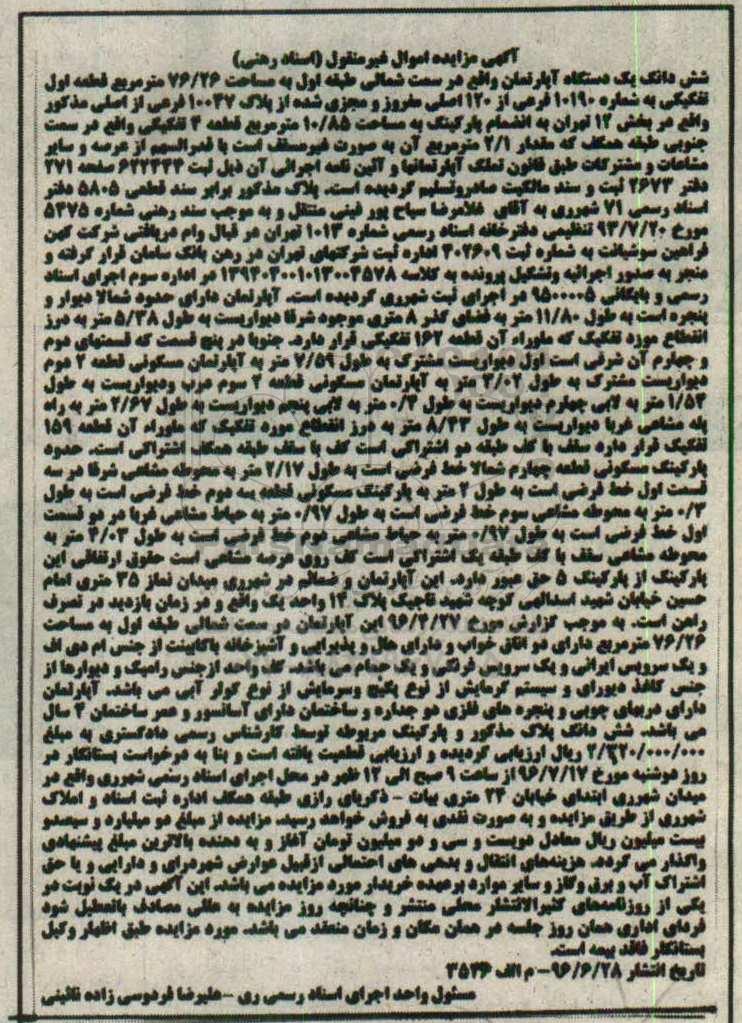 آگهی مزایده اموال غیرمنقول (اسناد رهنی)
شش دانگ یک دستگاه آپارتمان واقع در سمت شمالی طبقه اول به مساحت ۷۶/۲۶ مترمربع قطعه اول
تفکیکی به شماره ۱۰۱۹۰ فرعی از ۱۲۰ اصلی مفروز و مجزی شده از پلاک ۱۰۰۴۷ فرعی از اصلی مذکور
واقع در بخش ۱۲ تهران به انضمام پارکینگ به مساحت ۱۰/۸۵ مترمربع قطعه ۴ تفکیکی واقع در سمت
جنوبی طبقه همکف که مقدار ۲/۱ مترمربع آن به صورت غیرمسقف است با قدرالسهم از عرصه و سایر
مشاعات و مشترکات طبق قانون تملک آپارتمانها و آئین نامه اجرائی آن ذیل ثبت ۶۲۲۴۴۴ صفحه ۲۷۱
دفتر ۲۶۷۳ ثبت و سند مالکیت صادروتسلیم گردیده است. پلاک مذکور برابر سند قطعی ۵۸۰۵ دفتر
اسناد رسمی ۷۱ شهرری به آقای غلامرضا سیاح پور فینی منتقل و به موجب سند رهنی شماره ۵۴۷۵
مورخ ۹۳/۷/۲۰ تنظیمی دفترخانه اسناد رسمی شماره ۱۰۱۳ تهران در قبال وام دریافتی شرکت کهن
فراهین سوشیانت به شماره ثبت ۴۰۲۶۰۹ اداره ثبت شرکتهای تهران در رهن بانک سامان قرار گرفته و
منجر به صدور اجرائیه وتشکیل پرونده به کلاسه ۱۳۹۴۰۴۰۰۱۰۱۳۰۰۴۵۷۸ در اداره سوم اجرای اسناد
رسمی و بایگانی ۹۵۰۰۰۰۵ در اجرای ثبت شهرری گردیده است. آپارتمان دارای حدود شمالا دیوار و
پنجره است به طول ۱۱/۸۰ متر به فضای گذر ۸ متری موجود شرقا دیواریست به طول ۵/۳۸ متر به درز
انقطاع مورد تفکیک که ماوراء آن قطعه ۱۶۲ تفکیکی قرار دارد. جنوبا در پنج قسمت که قسمتهای دوم
و چهارم آن شرقی است اول دیواریست مشترک به طول ۷/۵۹ متر به آپارتمان مسکونی قطعه ۲ دوم
دیواریست مشترک به طول ۳/۰۲ متر به آپارتمان مسکونی قطعه ۲ سوم درب ودیواریست به طول
۱/۵۳ متر به لابی چهارم دیواریست به طول ۰/۴ متر به لابی پنجم دیواریست به طول ۲/۶۷ متر به راه
پله مشاعی غربا دیواریست به طول ۸/۴۳ متر به درز انقطاع مورد تفکیک که ماوراء آن قطعه ۱۵۹
تفکیک قرار دارد سقف با کف طبقه دو اشتراکی است کف با سقف طبقه همکف اشتراکی است. حدود
پارکینگ مسکونی قطعه چهارم شمالا خط فرضی است به طول ۲/۱۷ متر به محوطه مشاعی شرقا در سه
قسمت اول خط فرضی است به طول ۴ متر به پارکینگ مسکونی قطعه سه دوم خط فرضی است به طول
۰/۳ متر به محوطه مشاعی سوم خط فرضی است به طول ۰/۹۷ متر به حیاط مشاعی غربا در دو قسمت
اول خط فرضی است به طول ۰/۹۷ متر به حیاط مشاعی دوم خط فرضی است به طول ۴/۰۳ متر به
محوطه مشاعی سقف با کف طبقه یک اشتراکی است کف روی عرصه مشاعی است حقوق ارتفاقی این
پارکینگ از پارکینگ ۵ حق عبور دارد. این آپارتمان و ضمائم در شهرری میدان نماز ۳۵ متری امام
حسین خیابان شهید اسدالهی کوچه شهید تاجیک پلاک ۱۴ واحد یک واقع و در زمان بازدید در تصرف
راهن است. به موجب گزارش مورخ ۹۶/۲/۲۷ این آپارتمان در سمت شمالی طبقه اول به مساحت
۷۶/۲۶ مترمربع دارای دو اتاق خواب و دارای هال و پذیرایی و آشپزخانه باکابینت از جنس ام دی اف
و یک سرویس ایرانی و یک سرویس فرنگی و یک حمام می باشد. کف واحد ازجنس رامیک و دیوارها از
جنس کاغذ دیورای و سیستم گرمایش از نوع پکیج وسرمایش از نوع کولر آبی می باشد. آپارتمان
دارای دربهای چوبی و پنجره های فلزی دو جداره و ساختمان دارای آسانسور و عمر ساختمان ۴ سال
می باشد. شش دانگ پلاک مذکور و پارکینگ مربوطه توسط کارشناس رسمی دادگستری به مبلغ
۲/۳۲۰/۰۰۰/۰۰۰ ریال ارزیابی گردیده و ارزیابی قطعیت یافته است و بنا به درخواست بستانکار در
روز دوشنبه مورخ ۹۶/۷/۱۷ از ساعت ۹ صبح الی ۱۲ ظهر در محل اجرای اسناد رسمی شهرری واقع در
میدان شهرری ابتدای خیابان ۲۴ متری بیات - ذکریای رازی طبقه همکف اداره ثبت اسناد و املاک
شهرری از طریق مزایده و به صورت نقدی به فروش خواهد رسید. مزایده از مبلغ دو میلیارد و سیصدو
بیست میلیون ریال معادل دویست و سی و دو میلیون تومان آغاز و به دهنده بالاترین مبلغ پیشنهادی
واگذار می گردد. هزینه‌های انتقال و بدهی های احتمالی ازقبیل عوارض شهرداری و دارایی و یا حق
اشتراک آب و برق وگاز و سایر موارد برعهده خریدار مورد مزایده می باشد. این آگهی در یک نوبت در
یکی از روزنامه‌های کثیرالانتشار محلی منتشر و چنانچه روز مزایده به عللی مصادف باتعطیل شود
فردای اداری همان روز جلسه در همان مکان و زمان منعقد می باشد. مورد مزایده طبق اظهار وکیل
بستانکار فاقد بیمه است.
تاریخ انتشار ۹۶/۶/۲۸- م الف ۳۵۴۶
مسئول واحد اجرای اسناد رسمی ری -علیرضا فردوسی زاده نائینی